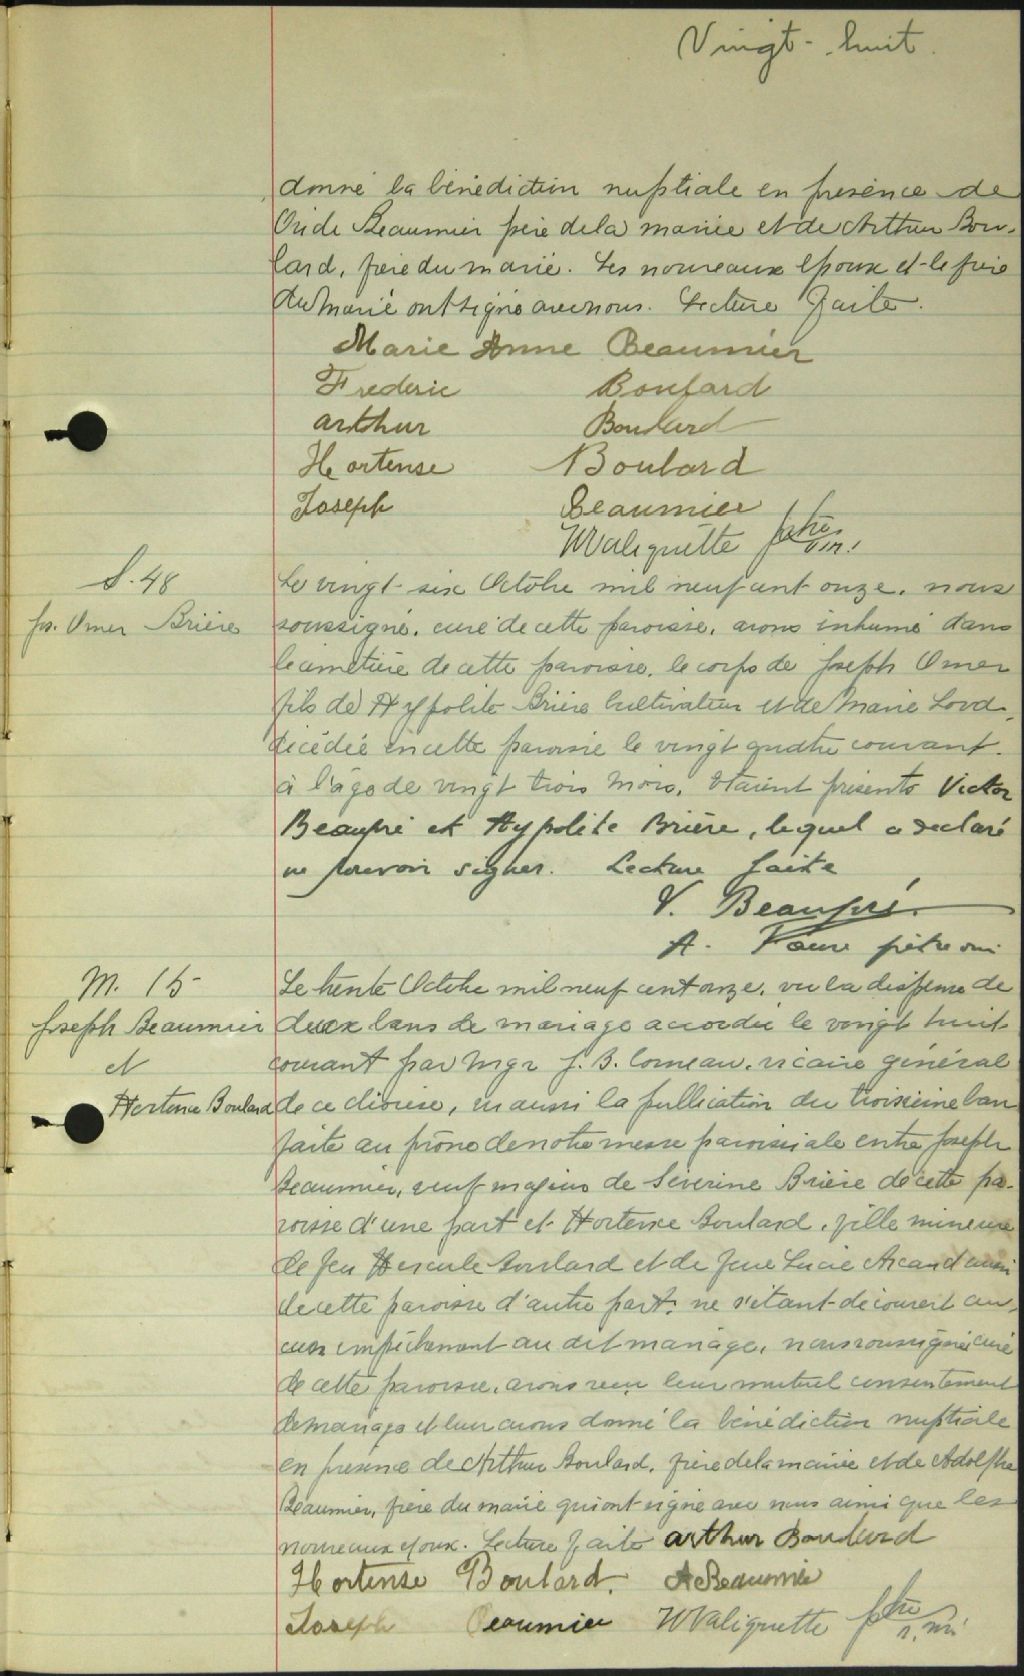 Vingt-huit.
donné la bénédiction nuptiale en présence de
Ovide Beaumier père de la mariée et de Arthur Bou-
lard, frère du marié. Les nouveaux époux et le frère
du marié ont signé avec nous. Lecture faite.
Marie Anne Beaumier
Frederic Boulard
arthur Boulard
Hortense Boulard
Joseph Beaumier
Valiquette ptre
S. 48
Jos. Omer Brière
Le vingt-six Octobre mil neuf cent onze, nous
soussigné, curé de cette paroisse, avons inhumé dans
le cimetière de cette paroisse, le corps de Joseph Omer
fils de Hypolite Brière cultivateur et de Marie Lord,
décédée en cette paroisse le vingt quatre courant
à l'âge de vingt trois mois, étaient présents Victor
Beaupré et Hypolite Brière, lequel a declaré
ne pouvoir signer. Lecture faite
V. Beaupré.
A. prêtre
M. 15
Joseph Beaumier
et
Hortense Boulard
Le trente Octobre mil neuf cent onze, vu la dispense de
deux bans de mariage accordée le vingt huit
courant par Mgr J. B. Comeau, vicaire général
de ce diocèse, vu aussi la publication du troisième ban
faite au prône de notre messe paroissiale entre Joseph
Beaumier, veuf majeur de Séverine Brière de cette pa-
roisse d'une part et Hortense Boulard, fille mineure
de feu Hercule Boulard et de feue Lucie Arcand aussi
de cette paroisse d'autre part; ne s'étant découvert au-
cun empêchement au dit mariage, nous soussigné curé
de cette paroisse, avons reçu leur mutuel consentement
de mariage et leur avons donné la bénédiction nuptiale
en présence de Arthur Boulard, frère de la mariée et de Adolphe
Beaumier, frère du marié qui ont signé avec nous ainsi que les
nouveaux époux. Lecture faite arthur Boulard
Hortense Boulard. A Beaumier
Joseph Beaumier Valiquette ptre